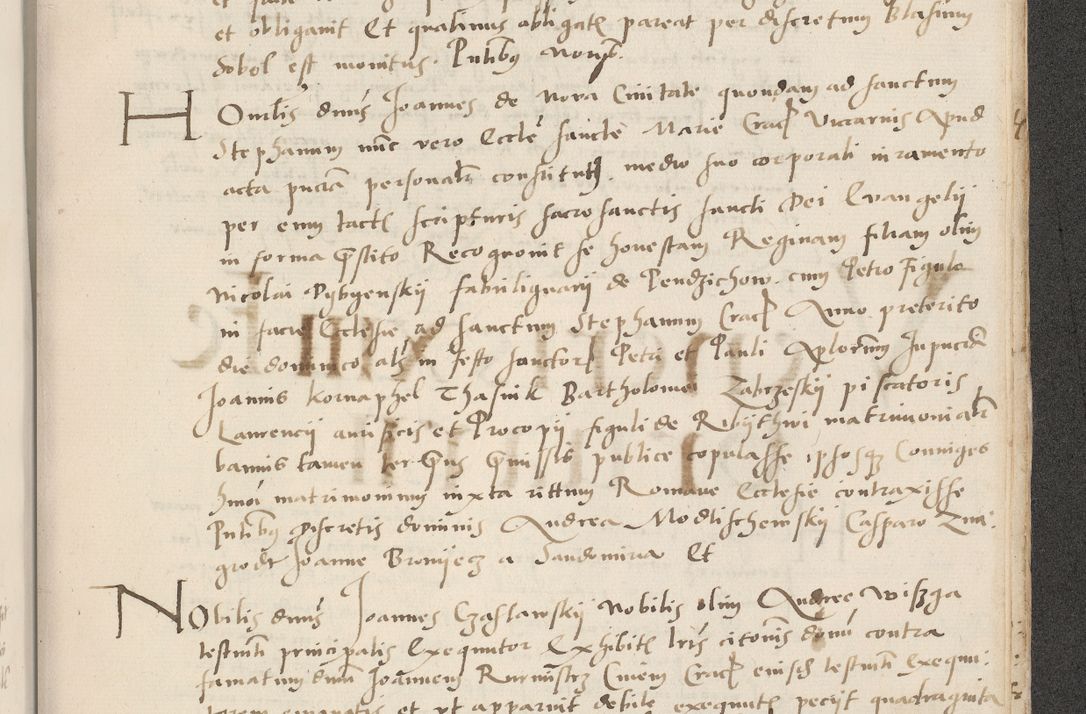 et obligavit Et quatinus obligatus pareat per discretum Blasium
Sobol est monitus. Pntibus Norist.
Honorabilis dnus Joannes de Nova Civitate quondam ad sanctum
Stephanum nunc vero Eccle sancte Marie Crac Vicarius Apud
acta pntia personalr constitutus. medio suo corporali iuramento
per eum tactis scripturis sacrosanctis sancti Dei Evangelii
in forma prestito Recognovit se honestam Reginam filiam olim
Nicolai fabrilignarii de Pendzichow. cum Petro Figulo
in facie Ecclesie ad sanctum Stephanum Crac Anno preterito
die dominico als in festo sanctorum Petri et Pauli Aplorum In pntia
Joannis Kornaphel Thasnik Bartholomei Zabrzeskij piscatoris
Laurencij aurificis et Procopij figuli de Ribythwi matrimonialr
bannis tamen ter prius premissis publice copulasse ipsosque Coniuges
hmoi matrimonium iuxta rittum Romane Ecclesie contraxisse
Pntibus Discretis dominis Andrea Modlischewskij Casparo
Joanne Bronijecz a Sandomiria Et
Nobilis dnus Joannes Czaslawskij Nobilis olim Andree Wiszga
testamenti principalis Exequutor Exhibitis lris citoriis contra
famatum dnum Joannem Civem Crac eiusdem testamenti Exequu:
et ut apparuit debite exequutis petijt quadraginta